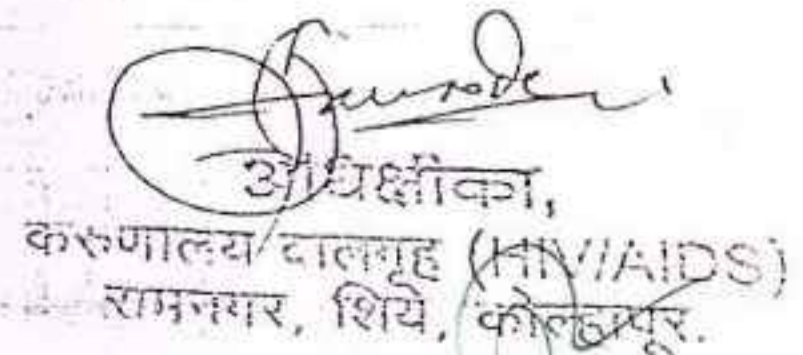 अधिक्षीका,
करुणालय बालगृह (HIV/AIDS)
रामनगर, शिये, कोल्हापूर.